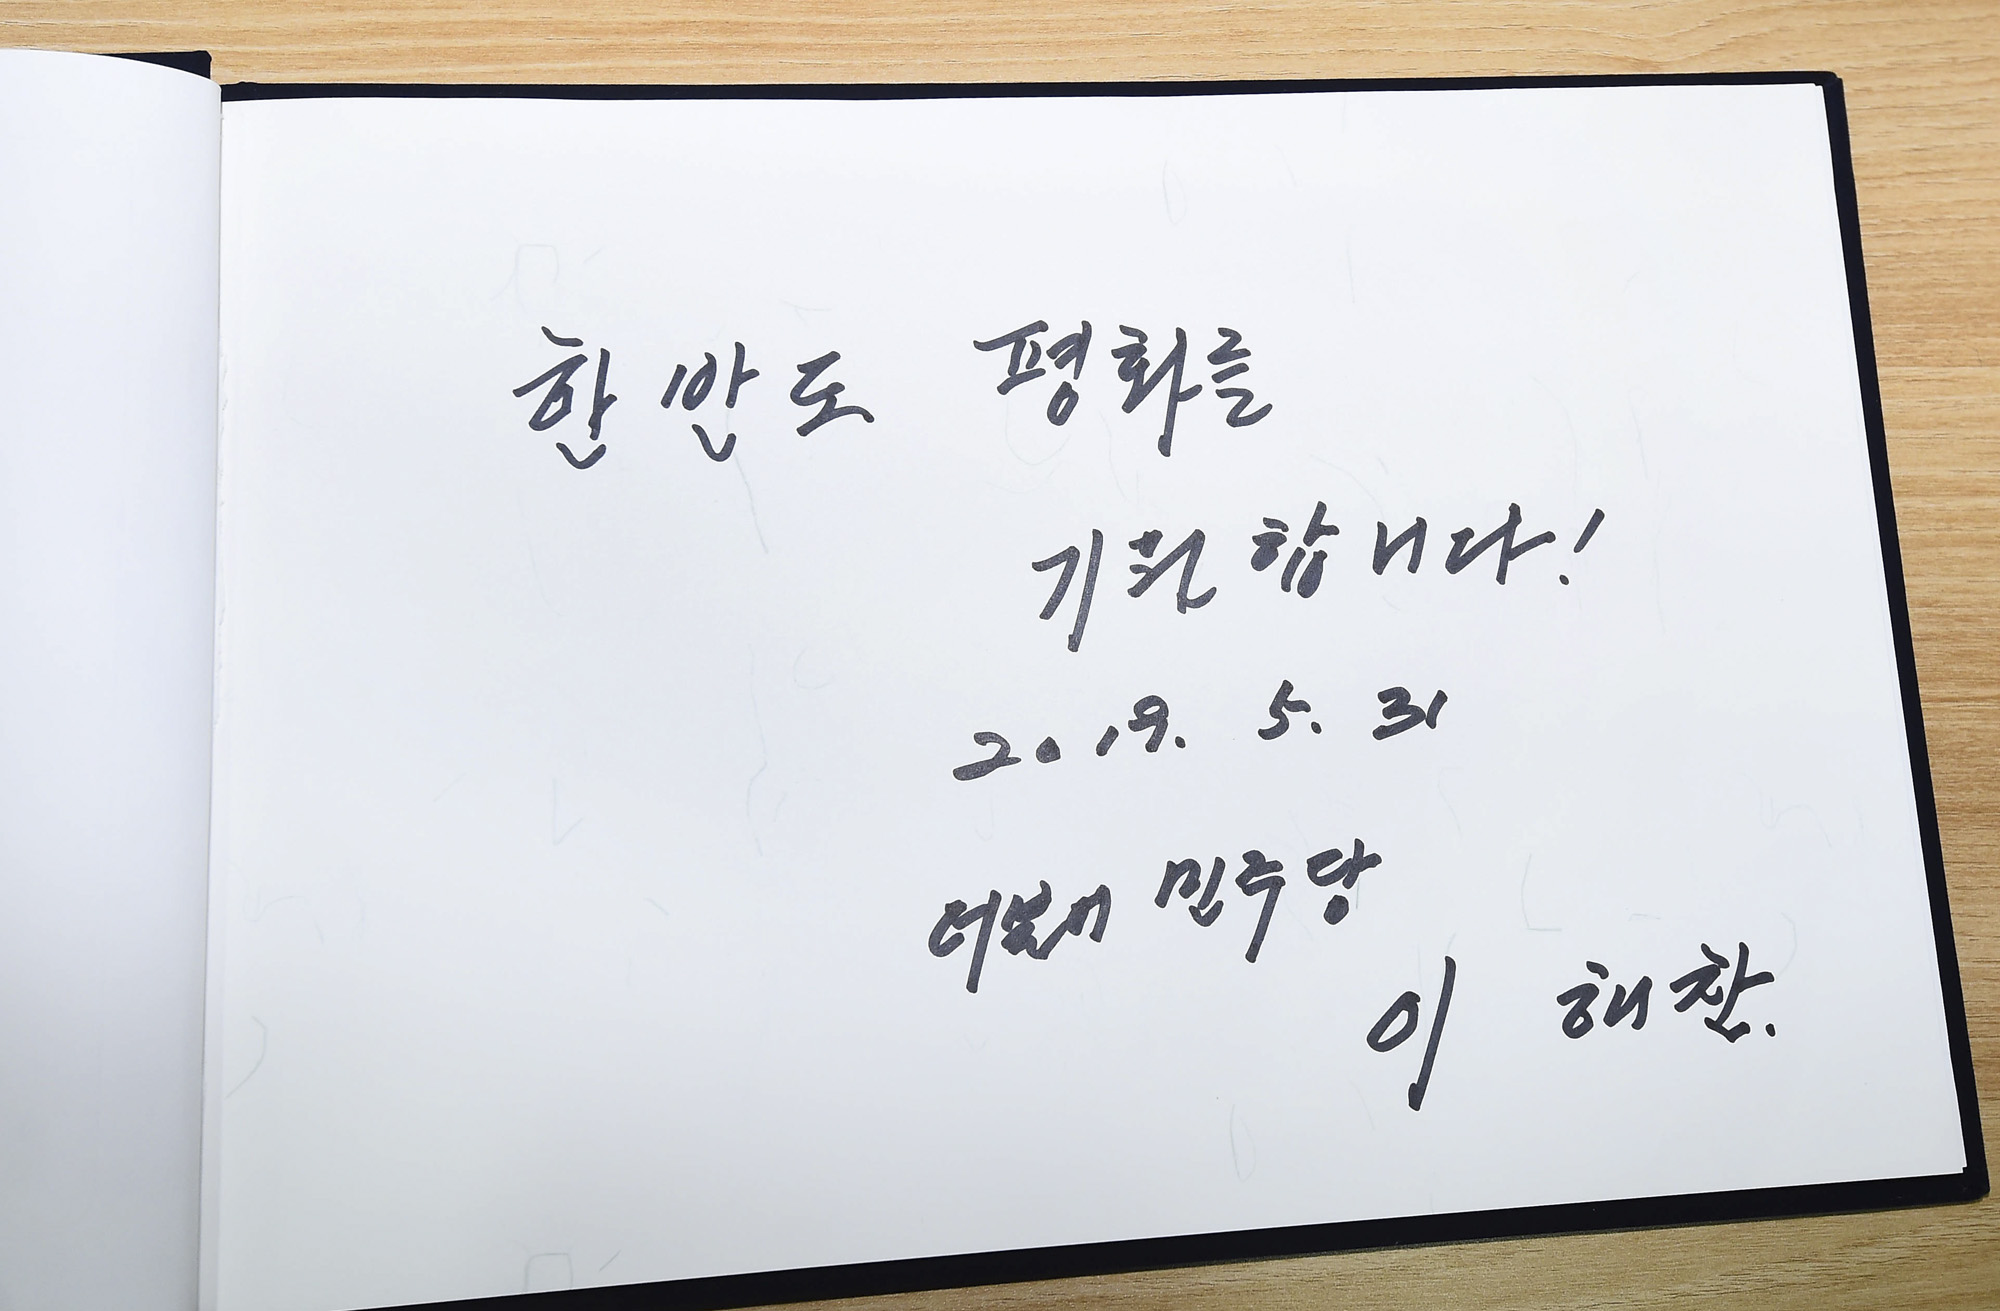 한반도 평화를
기원합니다!
2019. 5. 31
더불어 민주당
이 해찬.